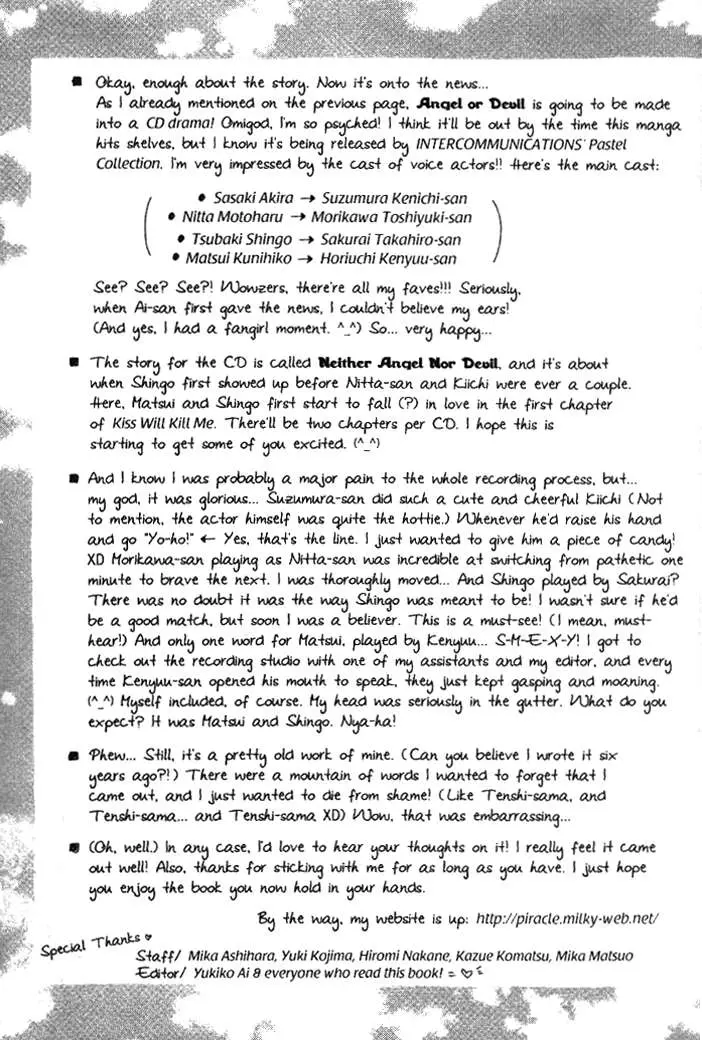 ■ Okay, enough about the story. Now it's onto the news...
As I already mentioned on the previous page, Angel or Devil is going to be made
into a CD drama! Omigod, I'm so psyched! I think it'll be out by the time this manga
hits shelves, but I know it's being released by INTERCOMMUNICATIONS' Pastel
Collection. I'm very impressed by the cast of voice actors!! Here's the main cast:
• Sasaki Akira → Suzumura Kenichi-san
• Nitta Motoharu → Morikawa Toshiyuki-san
• Tsubaki Shingo → Sakurai Takahiro-san
• Matsui Kunihiko → Horiuchi Kenyuu-san
See? See? See?! Wowzers, there're all my faves!!! Seriously,
when Ai-san first gave the news, I couldn't believe my ears!
(And yes, I had a fangirl moment. ^_^) So... very happy...
■ The story for the CD is called Neither Angel Nor Devil, and it's about
when Shingo first showed up before Nitta-san and Kiichi were ever a couple.
Here, Matsui and Shingo first start to fall (?) in love in the first chapter
of Kiss Will Kill Me. There'll be two chapters per CD. I hope this is
starting to get some of you excited. (^_^)
■ And I know I was probably a major pain to the whole recording process, but...
my god, it was glorious... Suzumura-san did such a cute and cheerful Kiichi (Not
to mention, the actor himself was quite the hottie.) Whenever he'd raise his hand
and go "Yo-ho!" ← Yes, that's the line. I just wanted to give him a piece of candy!
XD Morikawa-san playing as Nitta-san was incredible at switching from pathetic one
minute to brave the next. I was thoroughly moved... And Shingo played by Sakurai?
There was no doubt it was the way Shingo was meant to be! I wasn't sure if he'd
be a good match, but soon I was a believer. This is a must-see! (I mean, must-
hear!) And only one word for Matsui, played by Kenyuu... S-M-E-X-Y! I got to
check out the recording studio with one of my assistants and my editor, and every
time Kenyuu-san opened his mouth to speak, they just kept gasping and moaning.
(^_^) Myself included, of course. My head was seriously in the gutter. What do you
expect? It was Matsui and Shingo. Nya-ha!
■ Phew... Still, it's a pretty old work of mine. (Can you believe I wrote it six
years ago?!) There were a mountain of words I wanted to forget that I
came out, and I just wanted to die from shame! (Like Tenshi-sama, and
Tenshi-sama... and Tenshi-sama XD) Wow, that was embarrassing...
■ (Oh, well.) In any case, I'd love to hear your thoughts on it! I really feel it came
out well! Also, thanks for sticking with me for as long as you have. I just hope
you enjoy the book you now hold in your hands.
By the way, my website is up: http://piracle.milky-web.net/
Special Thanks ♥
Staff/ Mika Ashihara, Yuki Kojima, Hiromi Nakane, Kazue Komatsu, Mika Matsuo
Editor/ Yukiko Ai & everyone who read this book! = ♡ ミ